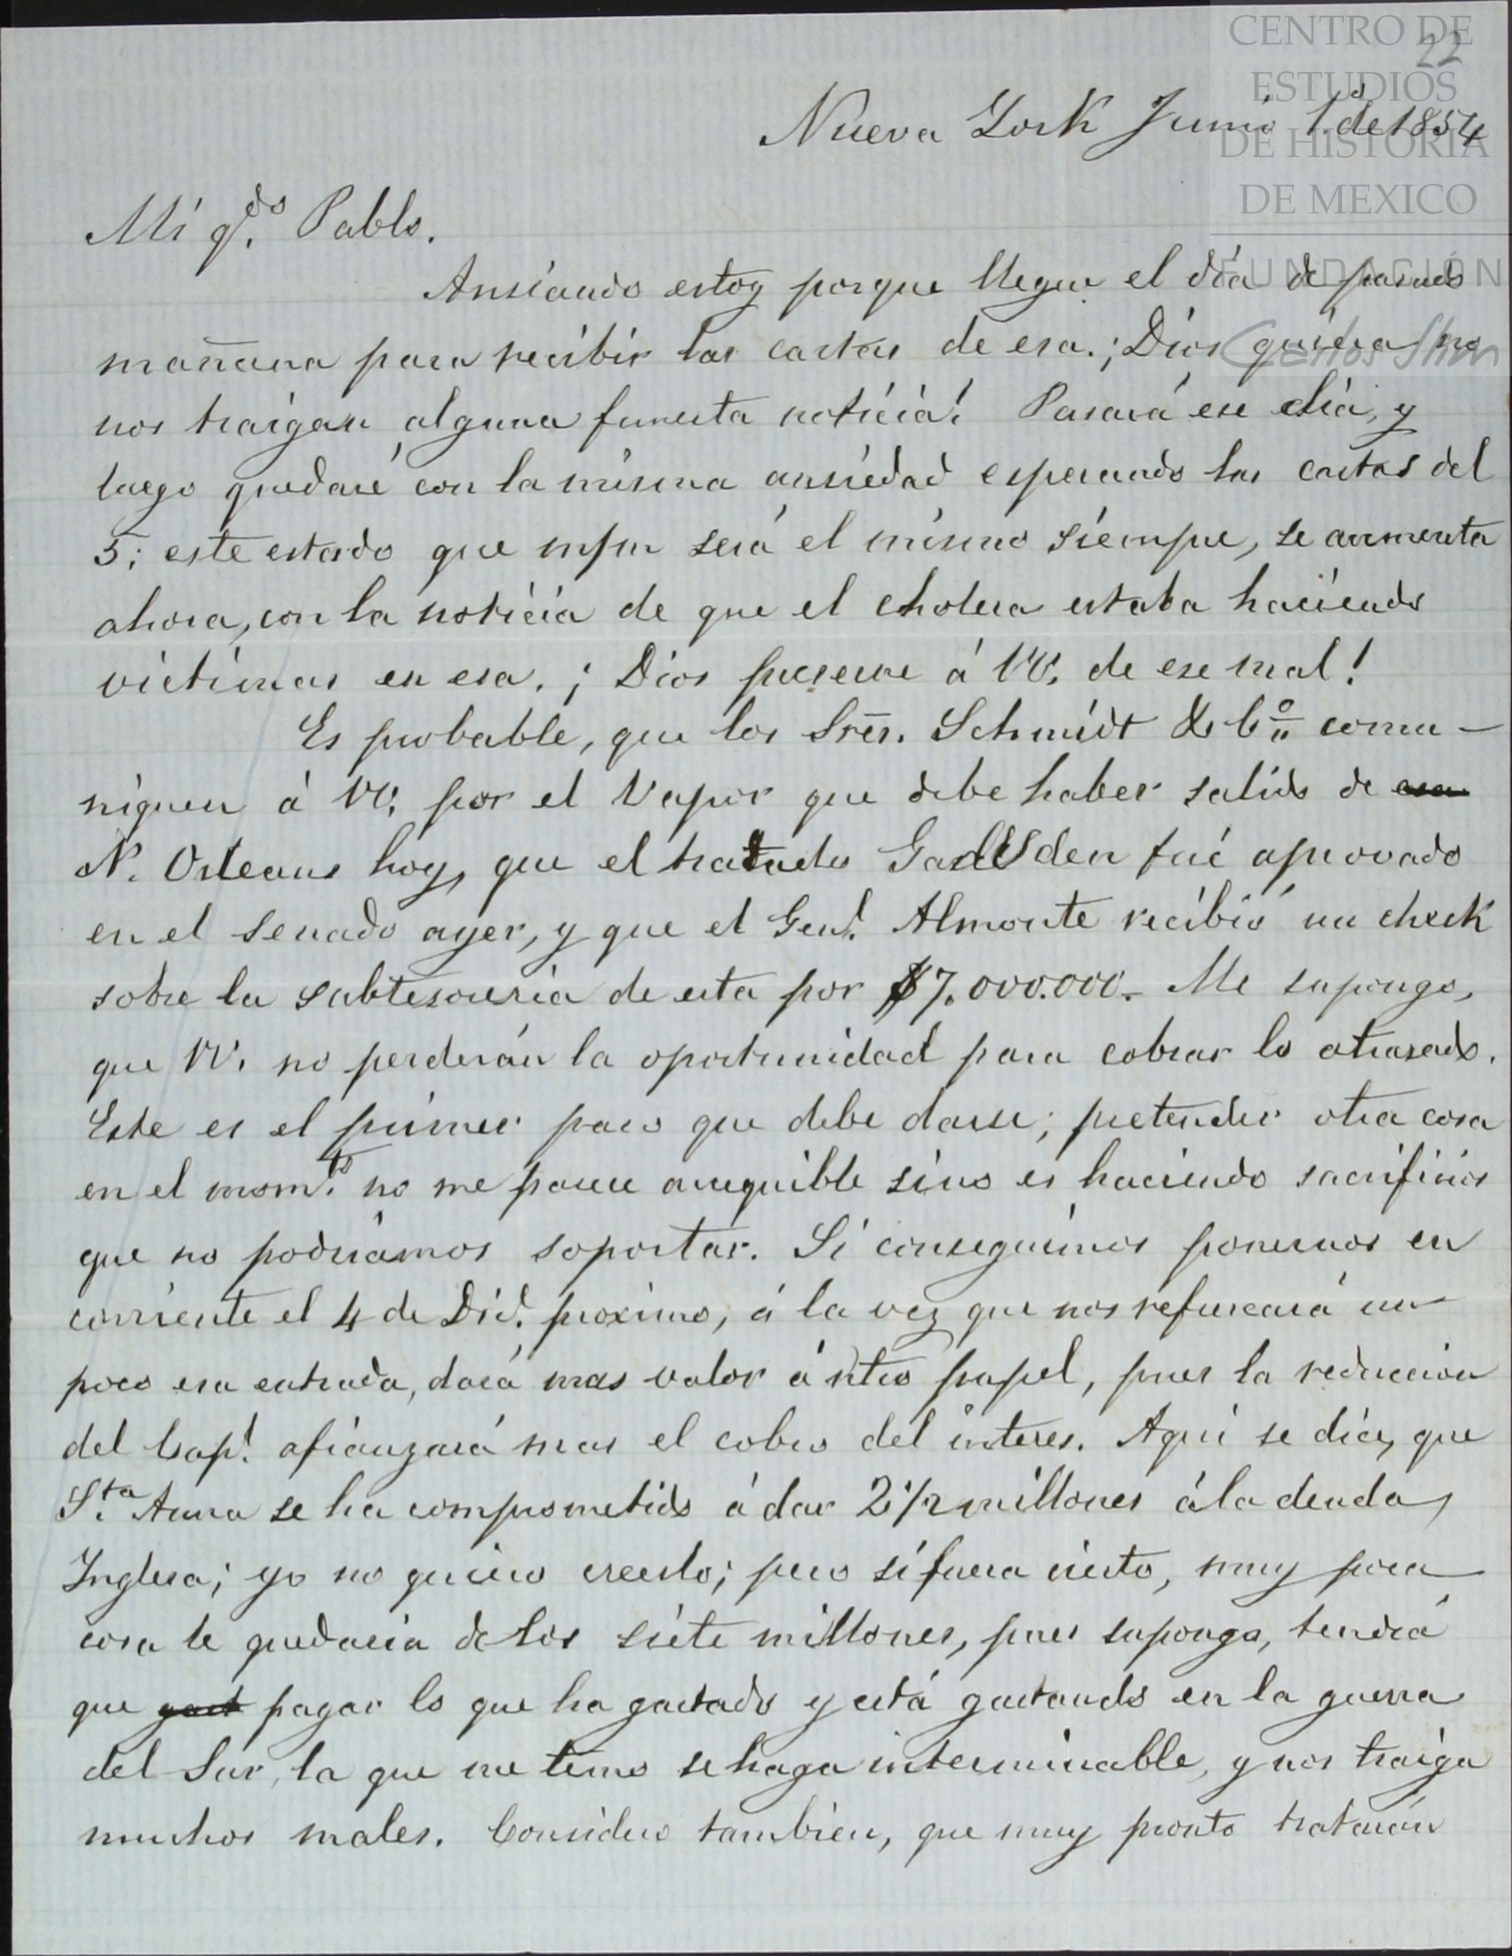 CENTRO DE
ESTUDIOS
DE HISTORIA
DE MEXICO
FUNDACIÓN
Carlos Slim
22
Nueva York Junio 1º de 1854
Mi q.do Pablo.
Ansiando estoy porque llegue el día de pasado
mañana para recibir las cartas de esa. ¡Dios quiera no
nos traigan alguna funesta noticia! Pasará ese dia, y
luego quedaré con la misma ansiedad esperando las cartas del
5; este estado que será el mismo siempre, se aumenta
ahora, con la noticia de que el cholera estaba haciendo
victimas en esa. ¡Dios preserve á VV. de ese mal!
Es probable, que los Sres. Schmidt & Cº comu-
niquen á VV. por el Vapor que debe haber salido de esa
N. Orleans hoy, que el tratado Gadsden fué aprovado
en el Senado ayer, y que el Genl. Almonte recibió un check
sobre la subtesoreria de esta por $7.000.000. Me supongo,
que VV. no perderán la oportunidad para cobrar lo atrasado.
Este es el primer paso que debe darse; pretender otra cosa
en el mom.to no me parece asequible sino es haciendo sacrificios
que no podriamos soportar. Si conseguimos ponernos en
corriente el 4 de Dic. proximo, á la vez que nos refrescará un
poco esa entrada, dará mas valor á ntro papel, pues la reduccion
del Capl. afianzará mas el cobro del interes. Aqui se dice, que
S.ta Anna se ha comprometido á dar 2 1/2 millones á la deuda
Inglesa; yo no quiero creerlo; pero si fuera cierto, muy poca
cosa le quedaria de los siete millones, pues supongo, tendrá
que gast pagar lo que ha gastado y está gastando en la guerra
del Sur, la que me temo se haga interminable, y nos traiga
muchos males. Considero tambien, que muy pronto tratarán